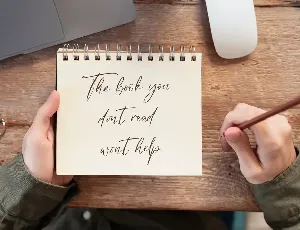 The book you
don't read
won't help